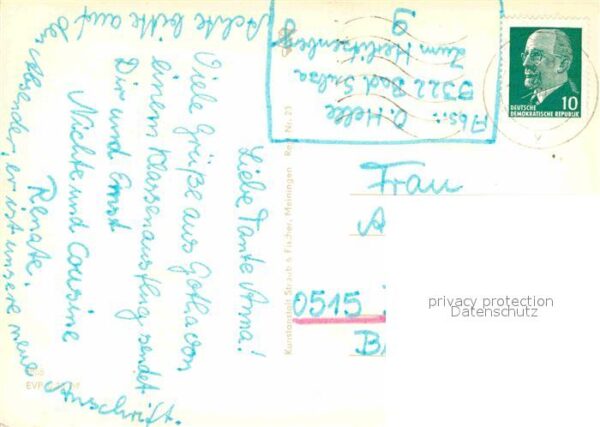 Liebe Tante Anna!
Viele Grüße aus Gotha von
einem Klassenausflug sendet
Dir und Ernst
Nichte und Cousine
Renate.
Achte bitte auf
den Absender, er ist unsere neue
Anschrift.
Abs.: O. Helle
5322 Bad Sulza
Zum Herlitzenberg
9
DEUTSCHE
DEMOKRATISCHE REPUBLIK
10
Frau
A
0515
B
Kunstanstalt Straub & Fischer, Meiningen
EVP
privacy protection
Datenschutz